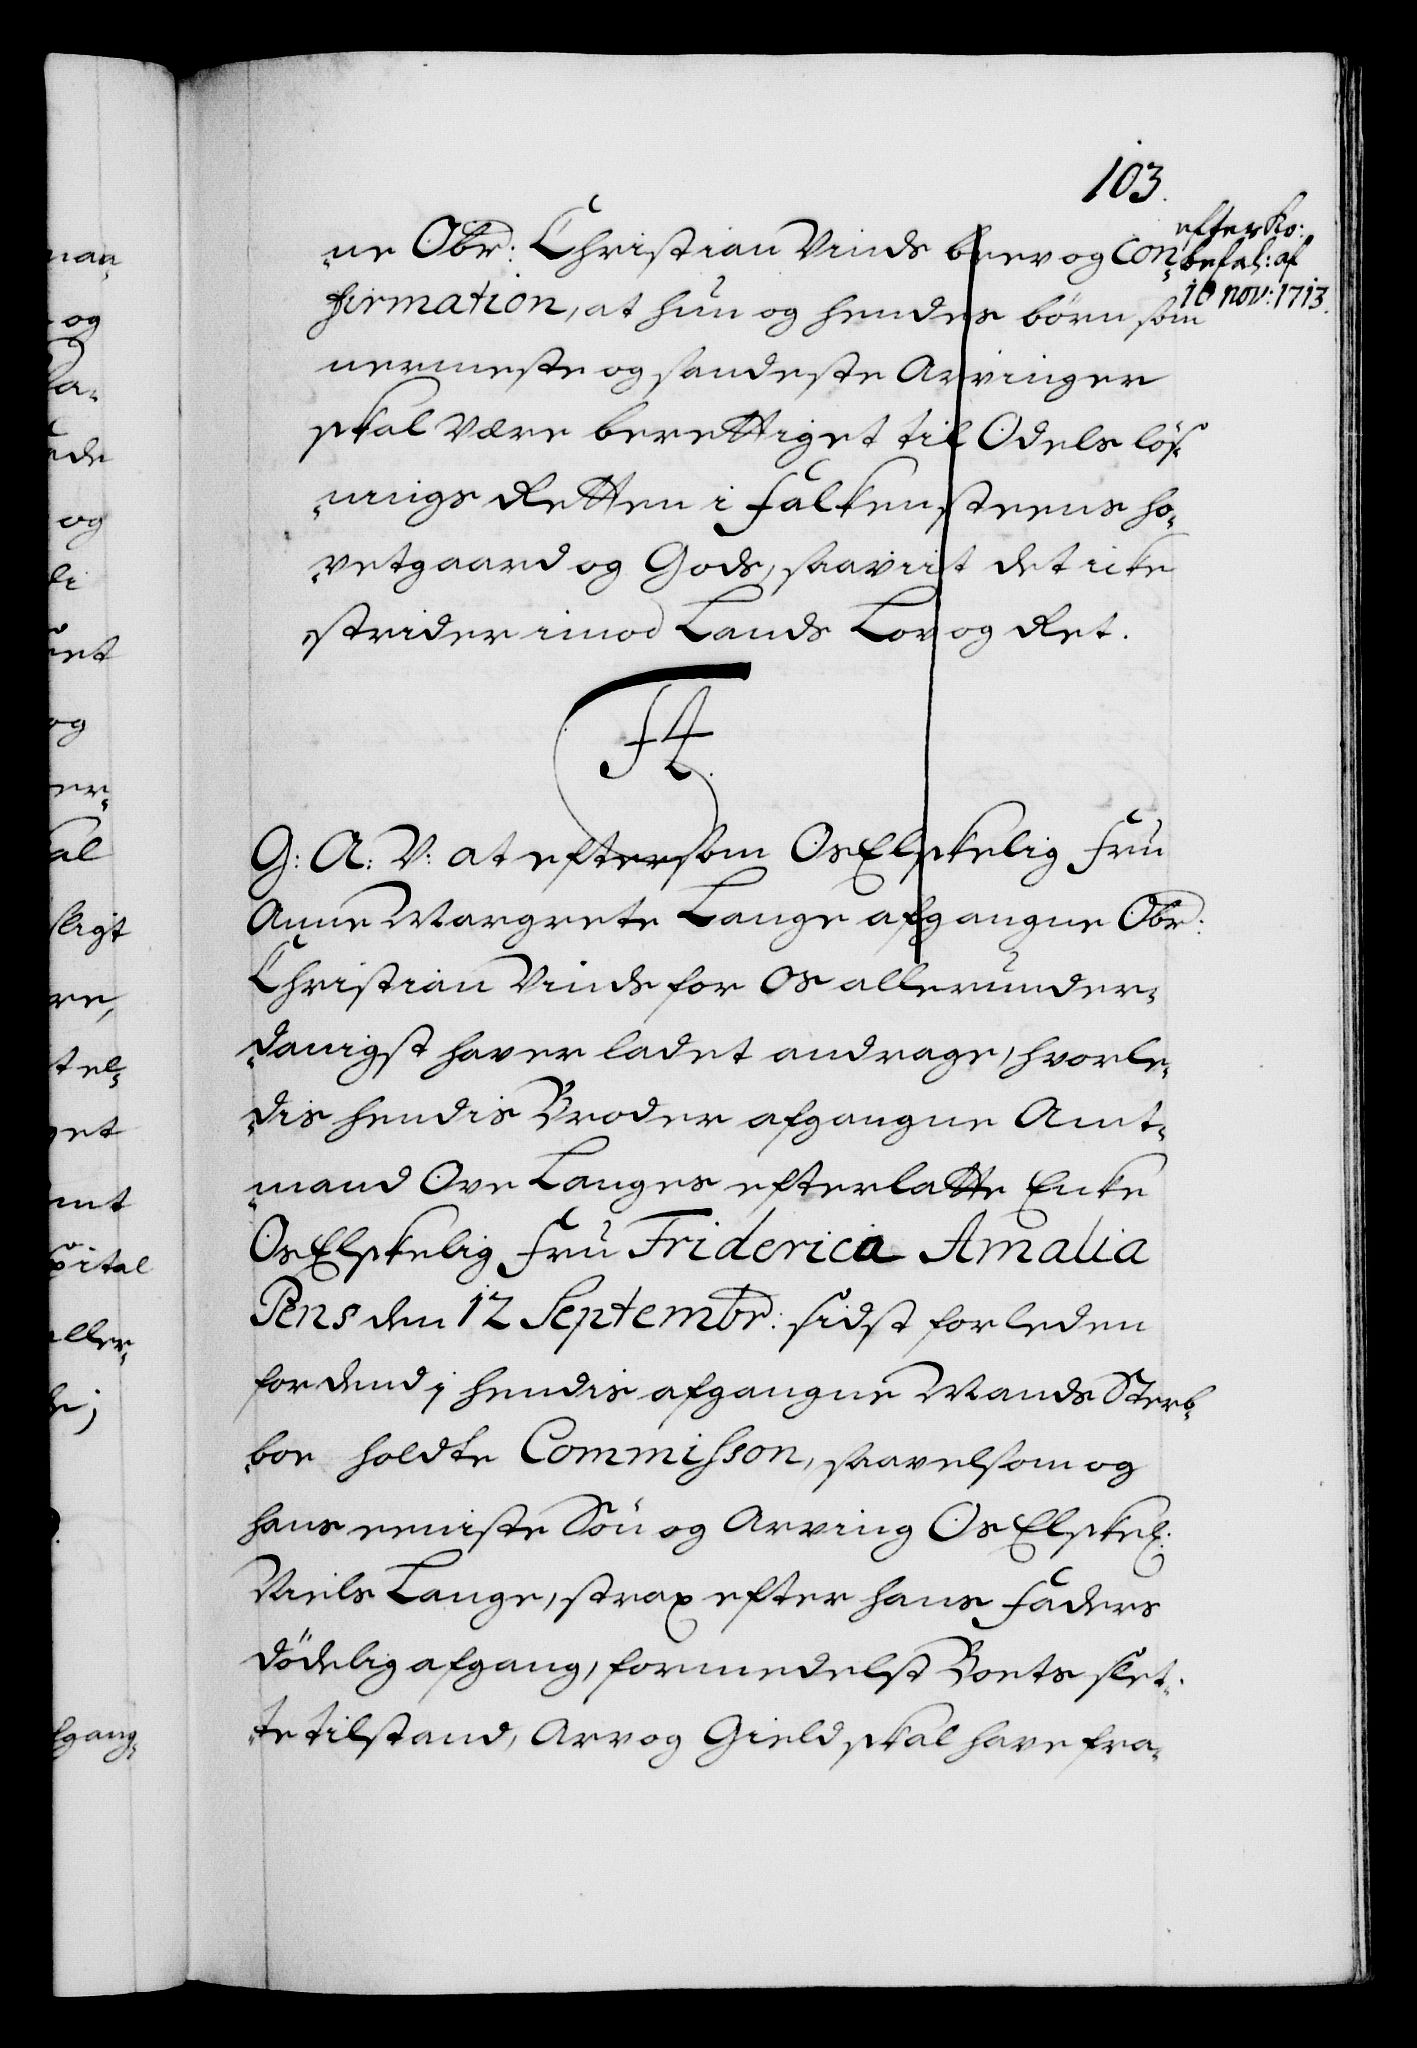 103.
efter Ko:
befal: af
10 nov: 1713.
-ne Obr: Christian Vinds brev og Con-
firmation, at hun og hendes börn som
nermeste og sandeste Arvinger
skal være berettiget til Odels lös-
-nings Retten i Falkensteens ho-
-vetgaard og Gods, saaviit det icke
strider imod Lands Lov og Ret.
G: A: V: at eftersom Os Elskelig Fru
Anne Margrete Lange afgangne Obr:
Christian Vinds for Os allerunder-
-danigst haver ladet andrage, hvorle-
-dis hendis Broder afgangne Amt-
-mand Ove Langes efterlatte Enke
Os Elskelig Fru Friderica Amalia
Pens den 12 Septembr: sidst forleden
for dend i hendis afgangne Mands Sterb-
-boe holdte Commission, saavelsom og
hans eeniste Sön og Arving Os Elskel:
Niels Lange, strax efter hans Faders
dödelig afgang, formedelst Boets slet-
-te tilstand, Arv og Gield skal have fra-
maa-
og
ede
og
et
og
er-
al
sligt
re,
stel-
get
mt
pital
aller-
fgang-